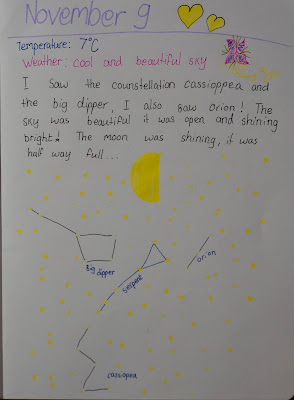 November 9
Temperature: 7°C
Weather: cool and beautiful sky
I saw the counstellation cassioppea and
the big dipper, I also saw Orion! The
sky was beautiful it was open and shining
bright! The moon was shining, it was
half way full...
Big dipper
serpent
orion
cassiopea